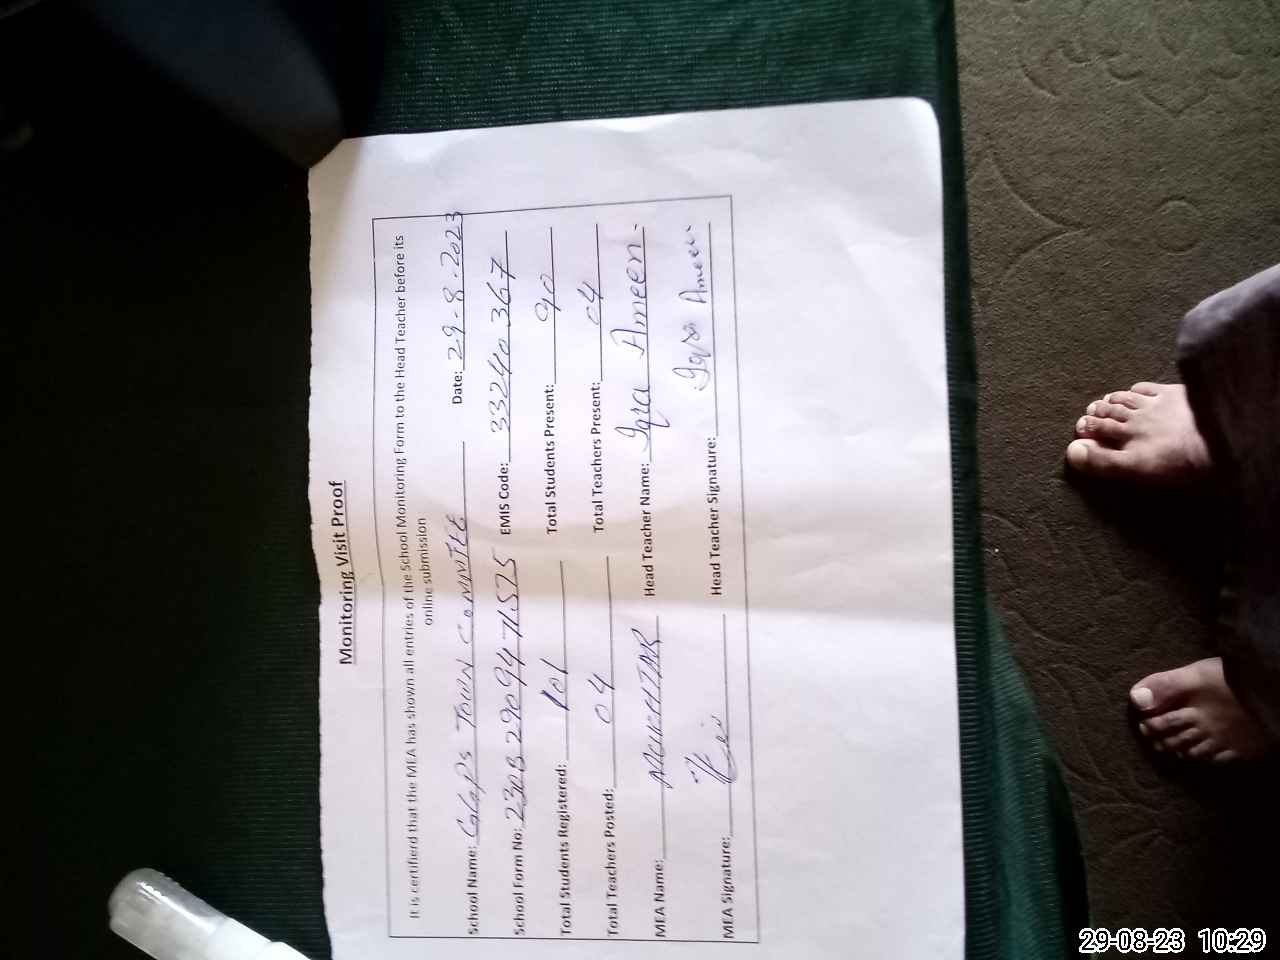 Monitoring Visit Proof
It is certifierd that the MEA has shown all entries of the School Monitoring Form to the Head Teacher before its
online submission
School Name: TOWN COMMITEE Date: 29-8-2023
School Form No: 23082909471575 EMIS Code: 33240367
Total Students Registered: 101 Total Students Present: 90
Total Teachers Posted: 04 Total Teachers Present: 04
MEA Name: Head Teacher Name: Iqra Ameen.
MEA Signature: Head Teacher Signature: Iqra Ameen
29-08-23 10:29